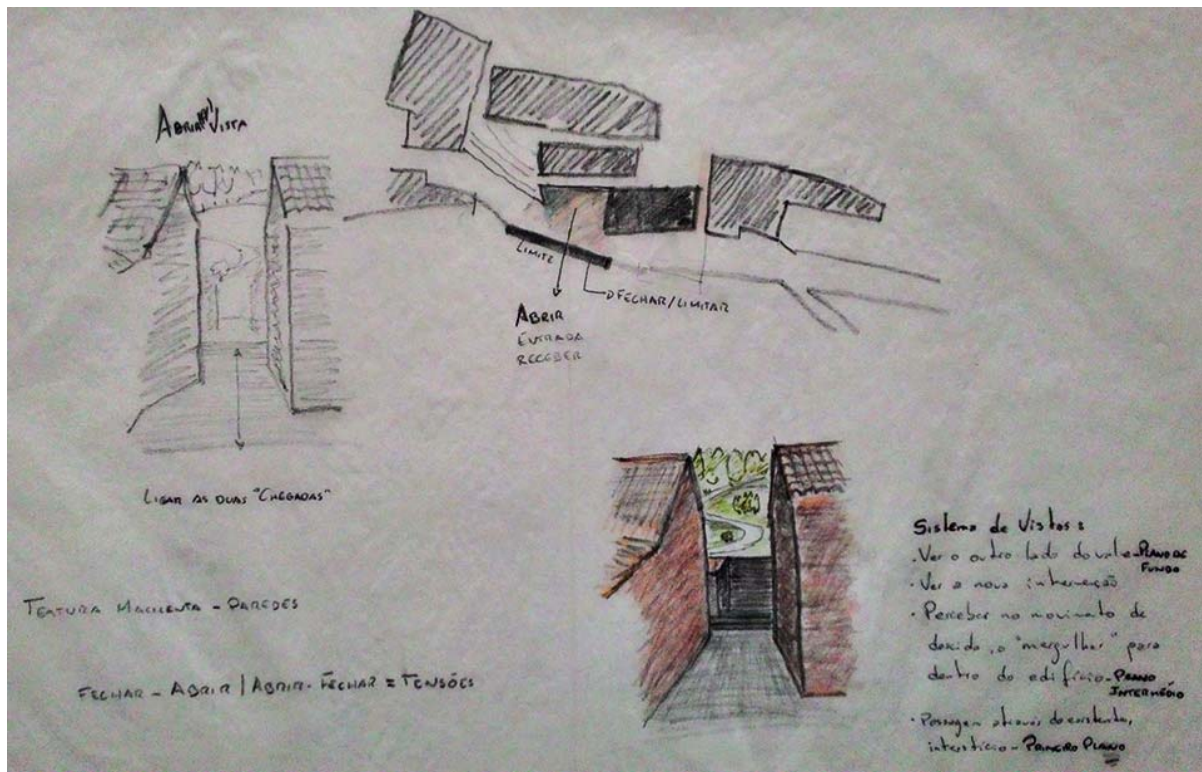 ABRIR VISTA
LIMITE
FECHAR/LIMITAR
ABRIR
ENTRADA
RECEBER
LIGAR AS DUAS "CHEGADAS"
TEXTURA MACILENTA - PAREDES
FECHAR - ABRIR | ABRIR - FECHAR = TENSÕES
Sistema de Vistas:
. Ver o outro lado do vale - PLANO DE
FUNDO
. Ver a nova intervenção
. Perceber no movimento de
descida, o "mergulhar" para
dentro do edifício - PLANO
INTERMÉDIO
. Passagem através do existente,
interstício - PRIMEIRO PLANO